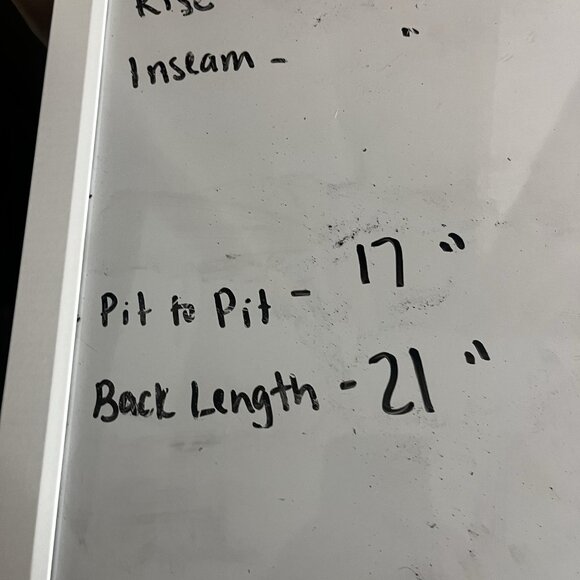 Rise
Inseam - "
Pit to Pit - 17 "
Back Length - 21 "